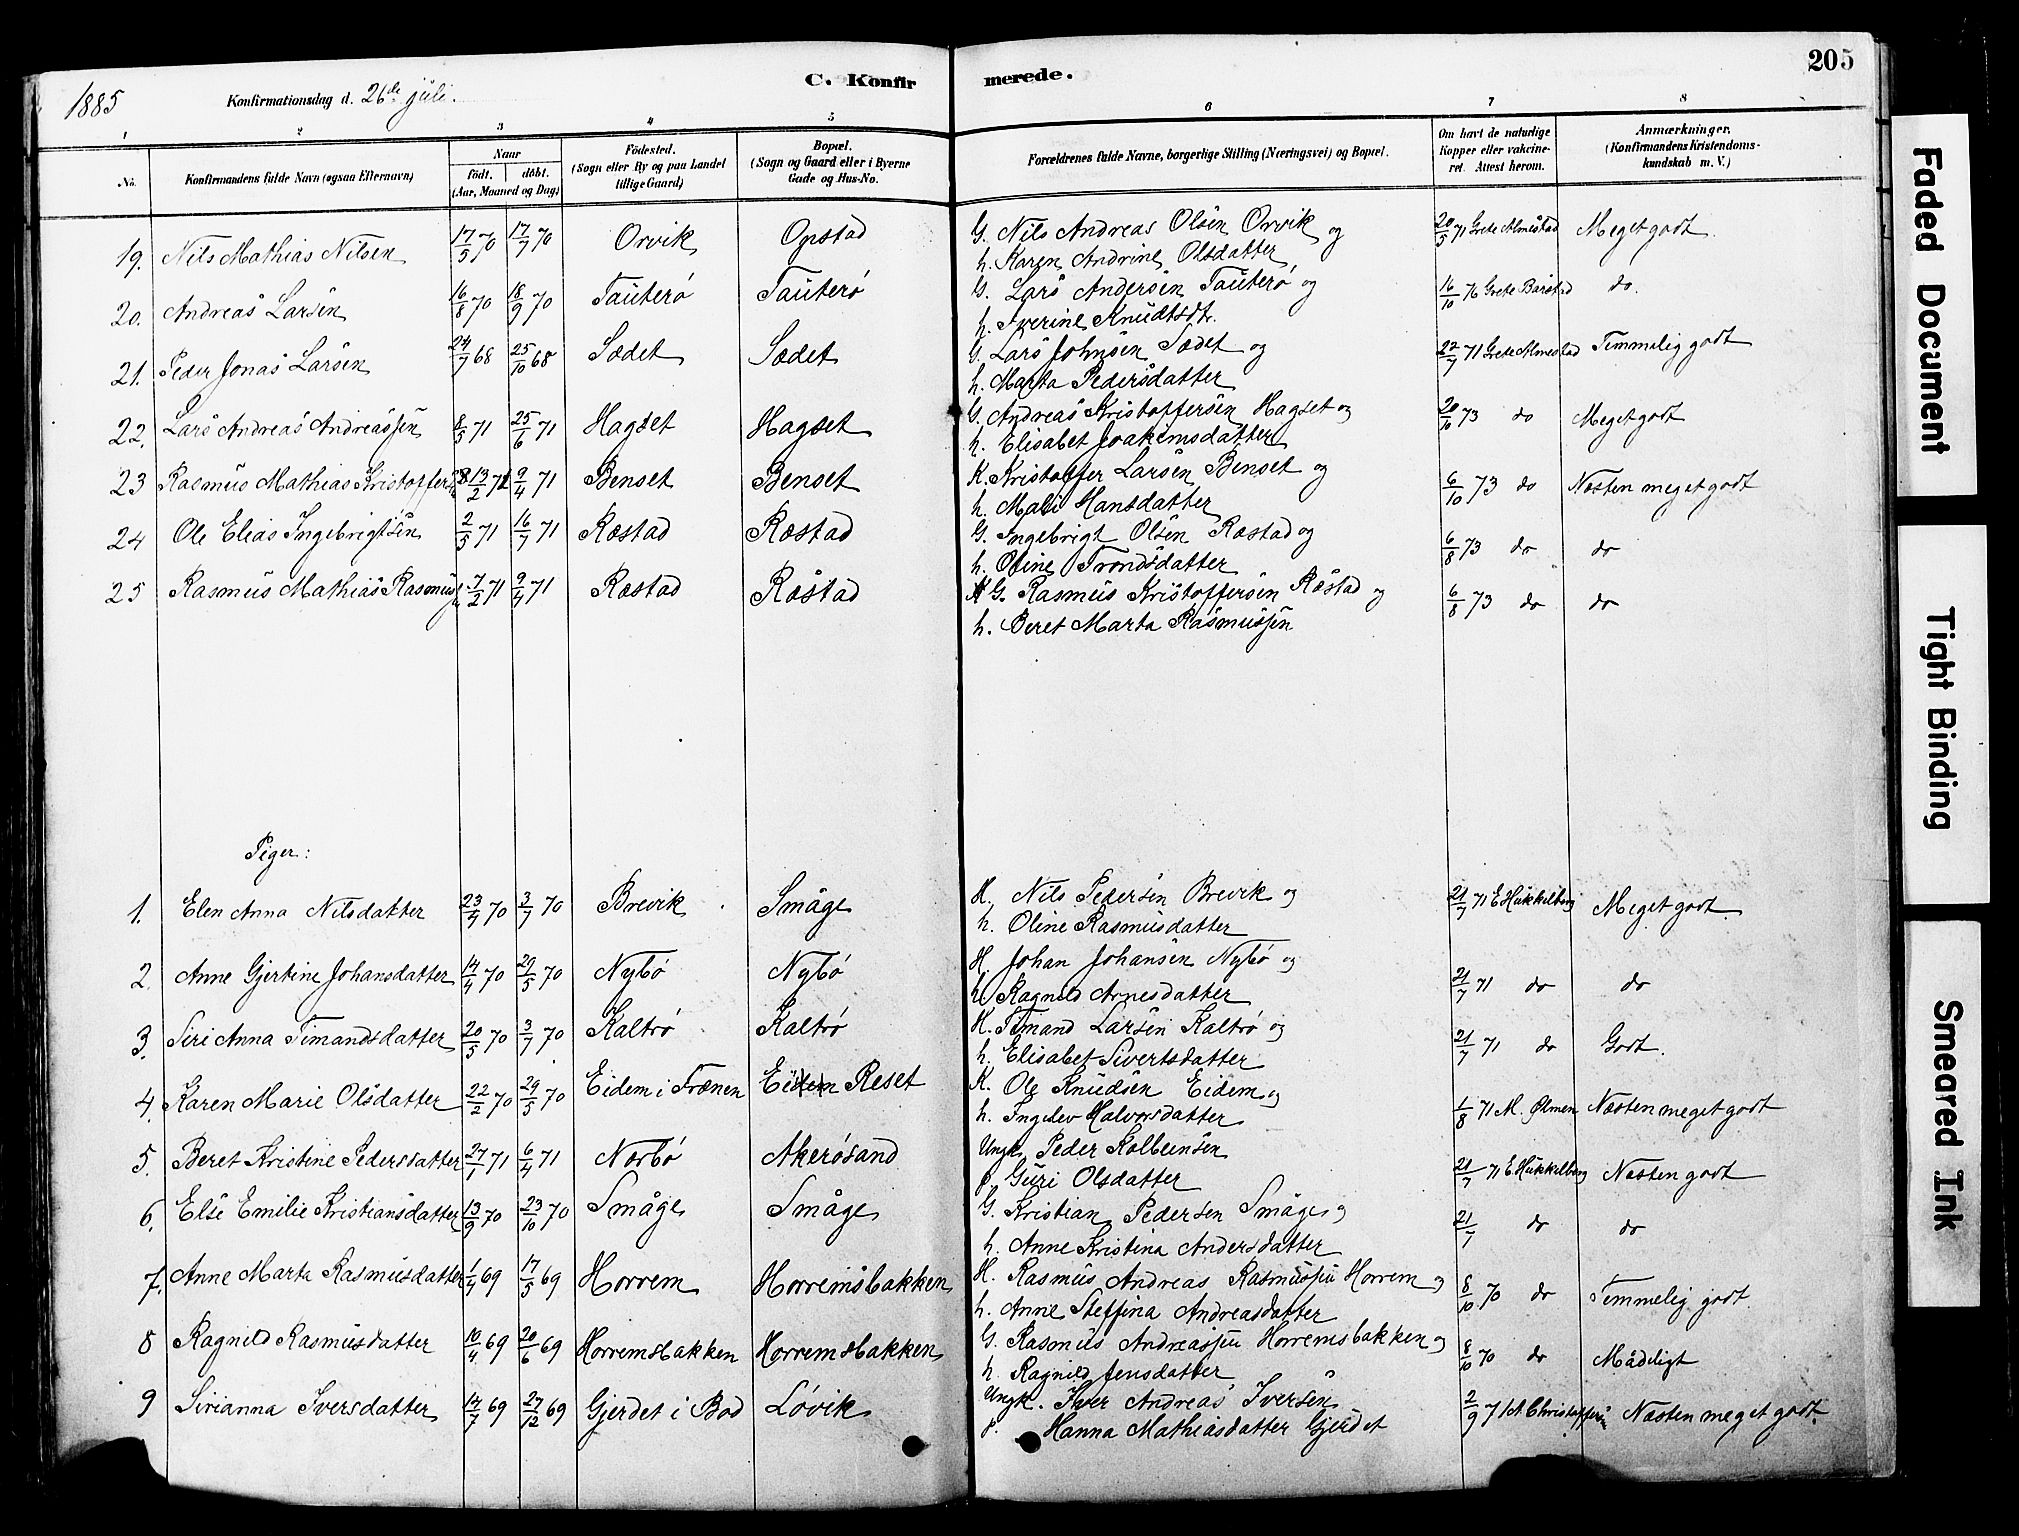 1885 Konfirmationsdag d. 26de juli. C. Konfirmerede. 205
1 2 3 4 5 6 7 8
No. Konfirmandens fulde Navn (ogsaa Efternavn) Naar födt. döbt. (Aar, Maaned og Dag) Födested. (Sogn eller By og paa Landet tillige Gaard) Bopæl. (Sogn og Gaard eller i Byerne Gade og Hus-No. Forældrenes fulde Navne, borgerlige Stilling (Næringsvei) og Bopæl. Om havt de naturlige Kopper eller vakcineret. Attest herom. Anmærkninger. (Konfirmandens Kristendomskundskab m. V.)
19. Nils Mathias Nilsen 17/5 70 17/7 70 Orvik Opstad G. Nils Andreas Olsen Orvik og 20/5 71 Grete Almestad Meget godt.
h. Karen Andrine Olsdatter
20. Andreas Larsen 16/8 70 18/9 70 Tauterö Tauterö G. Lars Andersen Tauterö og 16/10 76 Grete Barstad do.
h. Iverine Knudtsdt.
21. Peder Jonas Larsen 24/7 68 25/10 68 Sædet Sædet G. Lars Johnsen Sædet og 22/7 71 Grete Almestad Temmelig godt
h. Marta Pedersdatter
22. Lars Andreas Andreassen 8/5 71 25/6 71 Hagset Hagset G. Andreas Kristoffersen Hagset og 20/10 73 do Meget godt
h. Elisabet Joakimsdatter
23 Rasmus Mathias Kristoffersen 13/2 71 9/4 71 Benset Benset K. Kristoffer Larsen Benset og 6/10 73 do Næsten meget godt
h. Mali Hansdatter
24 Ole Elias Ingebrigtsen 2/5 71 16/7 71 Røstad Røstad G. Ingebrigt Olsen Røstad og 6/8 73 do do
h. Oline Trondsdatter
25 Rasmus Mathias Rasmuss. 7/2 71 9/4 71 Røstad Røstad G. Rasmus Kristoffersen Røstad og 6/8 73 do do
h. Beret Marta Rasmussen
Piger:
1. Elen Anna Nilsdatter 23/4 70 3/7 70 Brevik Småge H. Nils Pedersen Brevik og 21/7 71 E Hukkelberg Meget godt.
h. Oline Rasmusdatter
2. Anne Gjertine Johansdatter 14/4 70 29/5 70 Nybö Nybö H. Johan Johansen Nybö og 21/7 71 do do
h. Ragnild Arnesdatter
3. Siri Anna Timandsdatter 20/5 70 3/7 70 Kaltrö Kaltrö H. Timand Larsen Kaltrö og 21/7 71 do Godt.
h. Elisabet Sivertsdatter
4. Karen Marie Olsdatter 22/2 70 29/5 70 Eidem i Frænen Eidem Reset K. Ole Knudsen Eidem og 1/8 71 M. Ølmen Næsten meget godt
h. Ingelev Halvorsdatter
5. Beret Kristine Pedersdatter 27/1 71 6/4 71 Norbö Akerösand Ungk. Peder Kolbeinsen 21/7 71 E Hukkelberg Næsten godt
p. Guri Olsdatter
6. Else Emilie Kristiansdatter 13/9 70 23/10 70 Småge Småge G. Kristian Pedersen Småge og 21/7 do do
h. Anne Kristina Andersdatter
7. Anne Marta Rasmusdatter 1/4 69 17/5 69 Horrem Horremsbakken H. Rasmus Andreas Rasmussen Horrem og 8/10 70 do Temmelig godt.
h. Anne Steffina Andreasdatter
8 Ragnild Rasmusdatter 10/4 69 20/6 69 Horremsbakken Horremsbakken G. Rasmus Andreassen Horremsbakken og 8/10 70 do Mådeligt
h. Ragnild Jensdatter
9 Sirianna Iversdatter 14/7 69 27/12 69 Gjerdet i Bod Lövik Ungk. Iver Andreas Iversen 2/9 71 A Christoffersen Næsten meget godt.
p. Hanna Mathiasdatter Gjerdet
Faded Document
Tight Binding
Smeared Ink